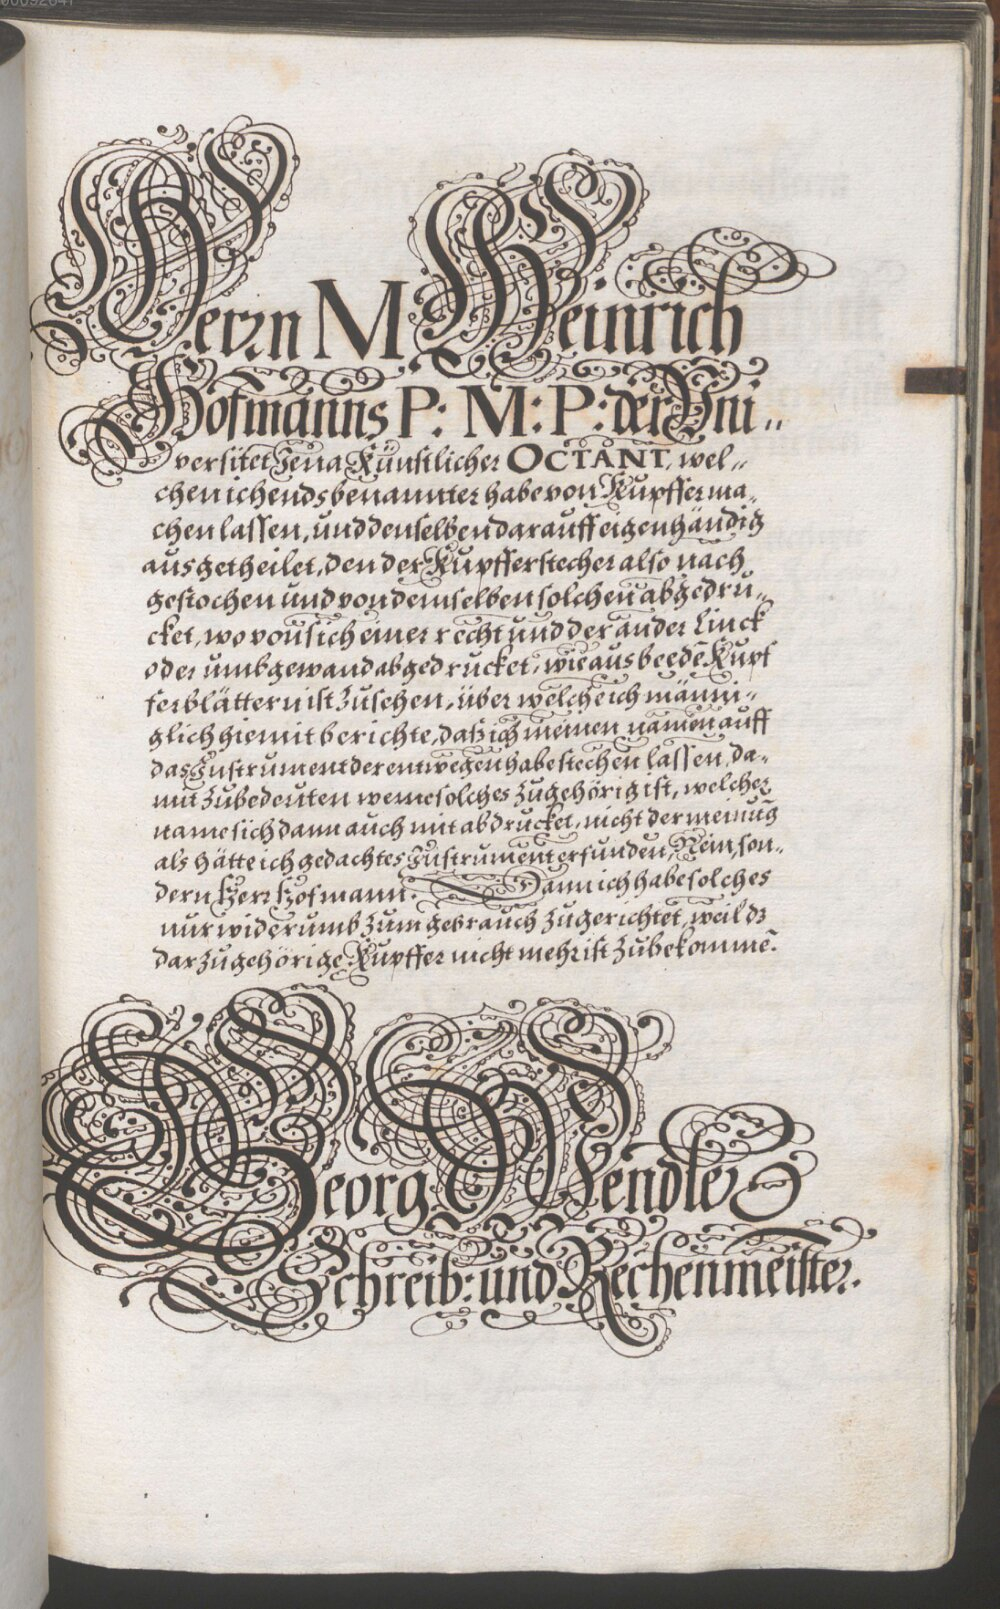 Herrn M Heinrich
Hofmanns P: M: P: der Uni„
versitet Jena Künstlicher OCTANT, wel„
chen ich ends benannter habe von Kupffer ma„
chen lassen, und denselben darauff eigenhändig
ausgetheilet, den der Kupfferstecher also nach
gestochen und von demselben solchen abgedru„
cket, wovon sich einer recht und der ander Linck
oder umbgewand abgedrucket, wie aus beede Kupf
ferblättern ist zusehen, über welche ich männi„
glich hiemit berichte, daß ich meinen namen auff
das Instrument derentwegen habe stechen lassen, da„
mit zubedeuten weme solches zugehörig ist, welcher
name sich dann auch mit abdrucket, nicht der meinūg
als hätte ich gedachtes Instrument erfunden, Nein, son„
dern Herr Hofmann. Dann ich habe solches
nur widerumb zum gebrauch zugerichtet, weil dz
darzugehörige Kupffer nicht mehr ist zubekommē.
Georg Wendler
Schreib: und Rechenmeister.